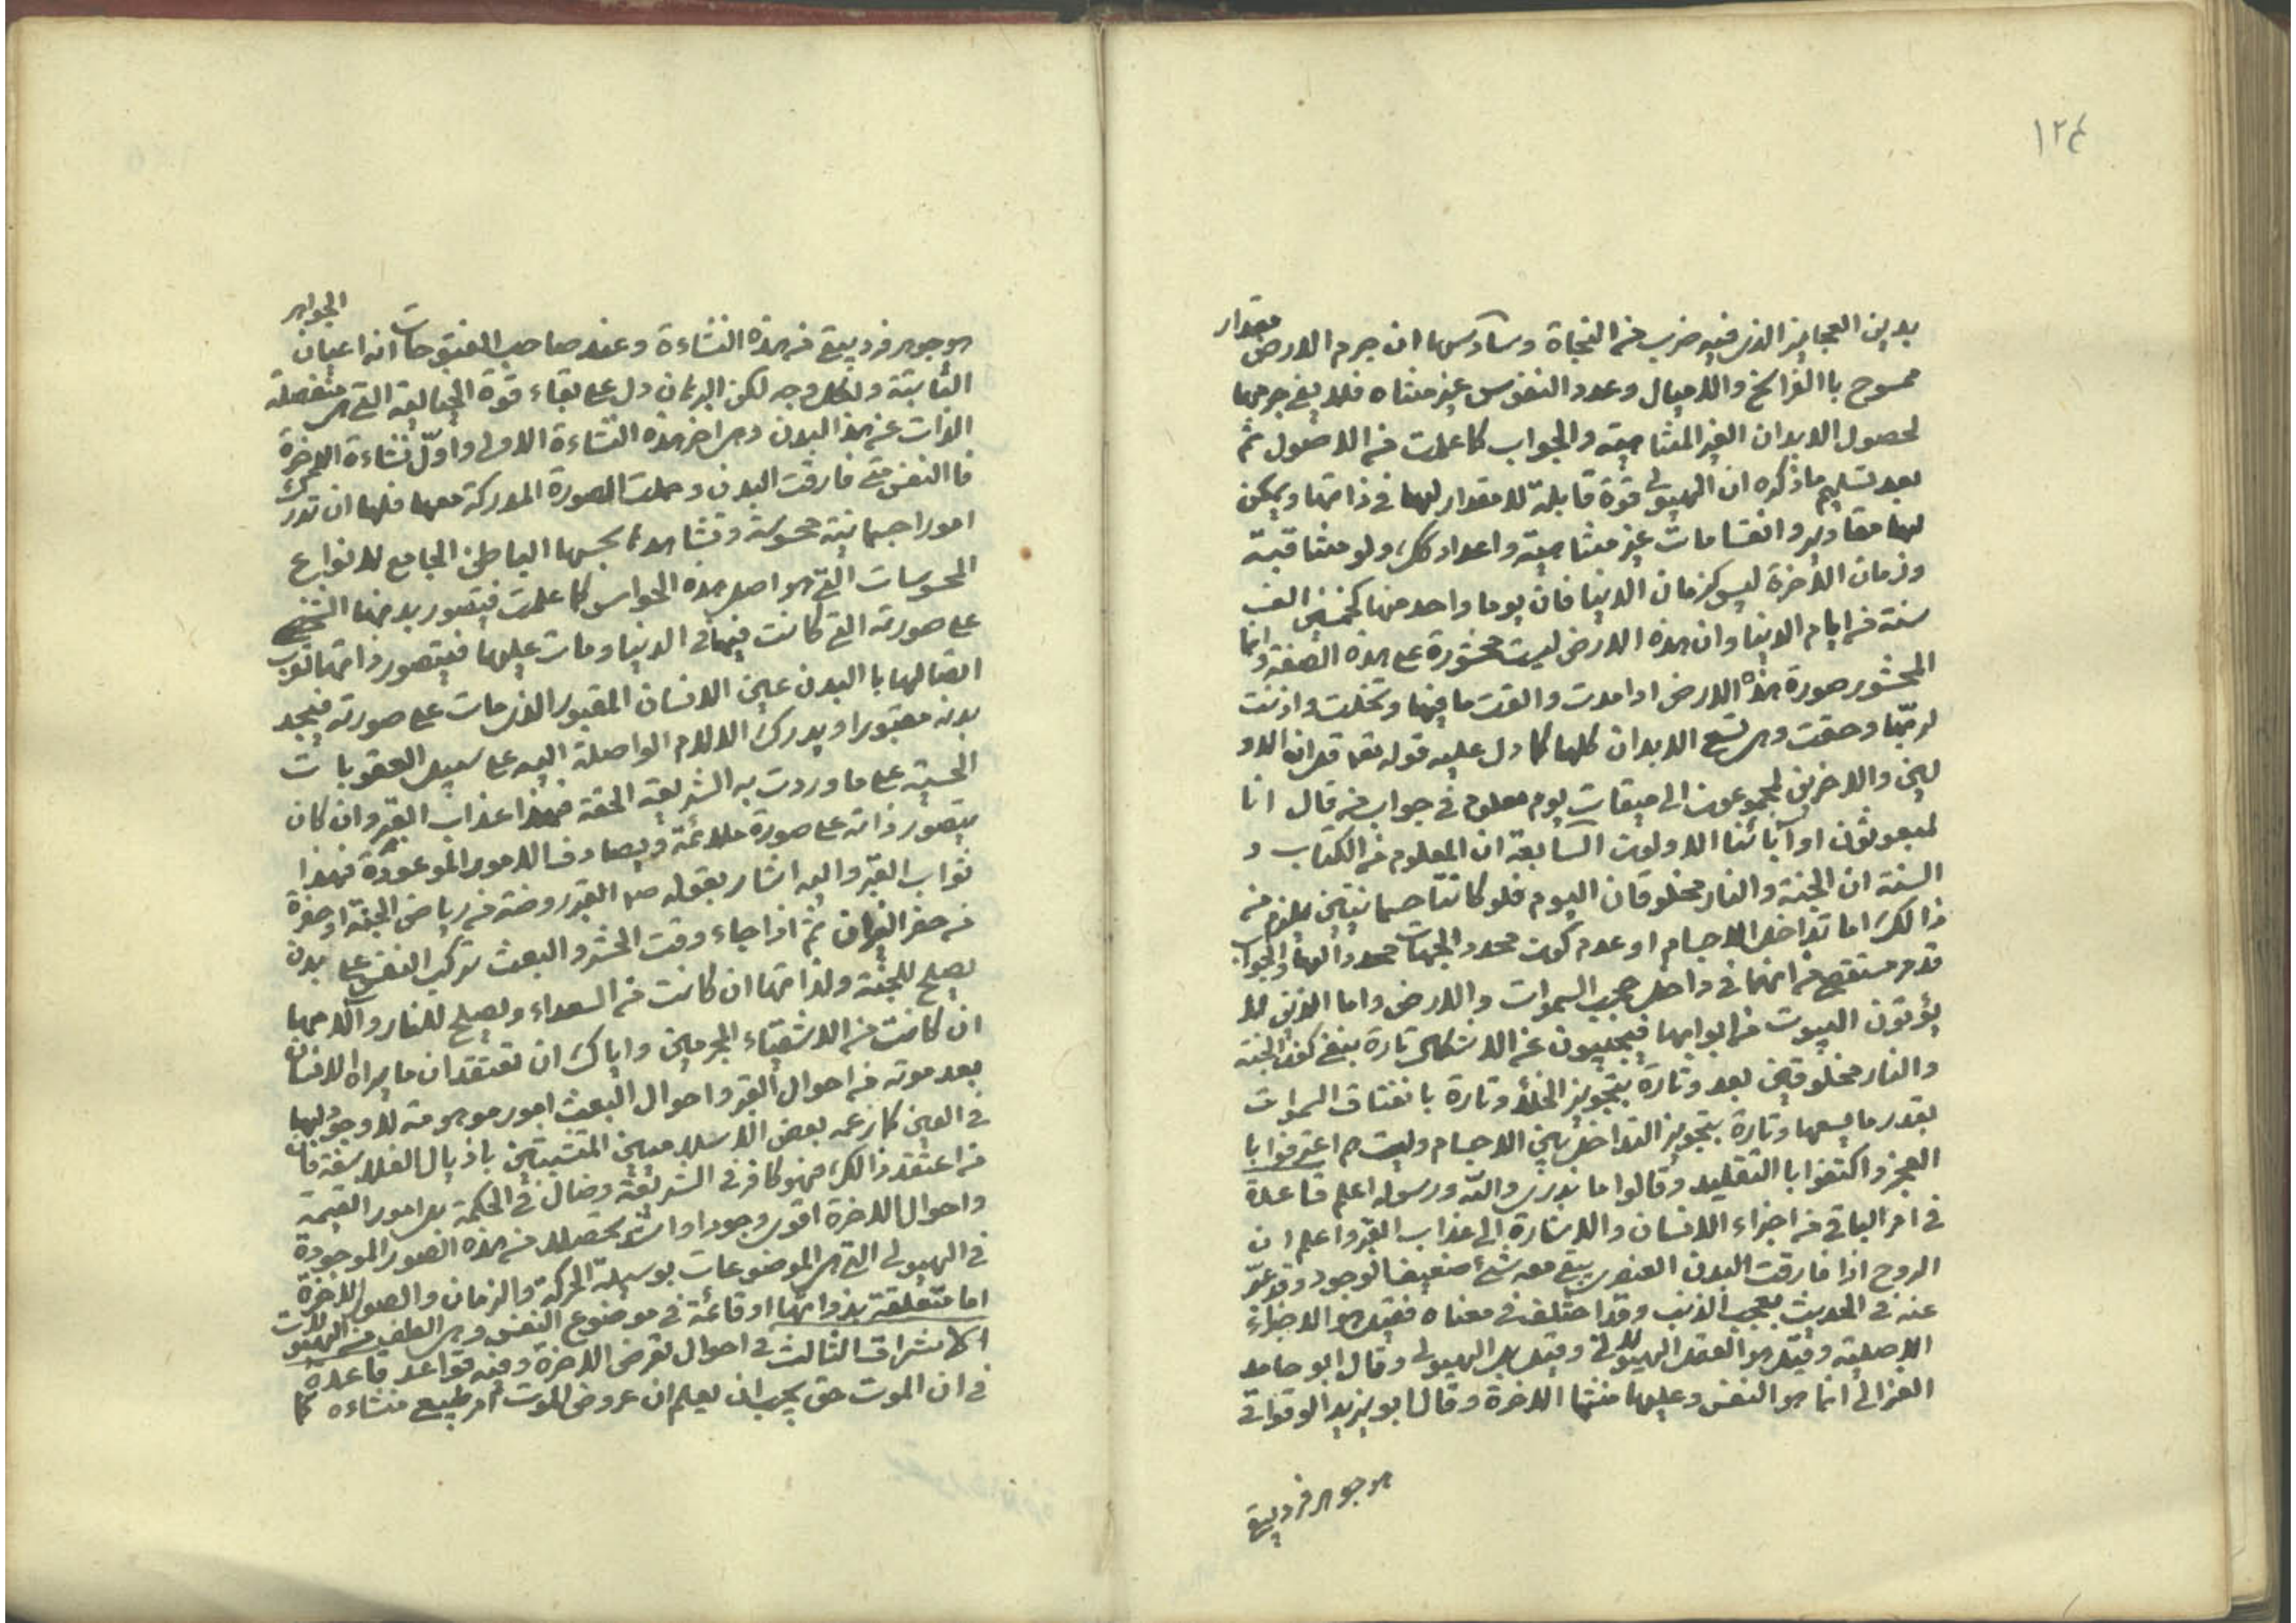 ١٢٤
بدين العجايز الذى فيه ضرب من النجاة وسادسها ان جرم الارض مقدار
ممسوح باالفراسخ والاميال وعدد النفوس غير متناه فلا يفى جرمها
لحصول الابدان الغير المتناهية والجواب كما علمت من الاصول ثم
بعد تسليم ما ذكره ان الهيولى قوة قابلة لا مقدار لها فى ذاتها ويمكن
لها مقادير وانقسامات غير متناهية واعداد كك ولو متعاقبة
وزمان الآخرة ليس كزمان الدنيا فان يوما واحد منها كخمسين الف
سنة من ايام الدنيا وان هذه الارض ليست محشورة على هذه الصفة وانما
المحشور صورة هذه الارض اذا مدت والقت ما فيها وتخلت واذنت
لربّها وحقت وهى تسع الابدان كلها كما دل عليه قوله تعا قل ان الاو
لين والاخرين لمجموعون الى ميقات يوم معلوم فى جواب من قال انا
لمبعوثون او آبائنا الاولون السابعة ان المعلوم من الكتاب و
السنة ان الجنة والنار مخلوقان اليوم فلو كانتا جسمانيتين يلزم من
ذالك اما تداخل الاجسام او عدم كون محدد الجهات محددا لها والجواب
قد مر مستقصى من انهما فى داخل حجب السموات والارض واما الذين لا
يؤتون البيوت من ابوابها فيجيبون عن الاشكال تارة بنفى كون الجنة
والنار مخلوقين بعد وتارة بتجويز الخلأ وتارة بانفتاق السموات
بقدر ما يسعها وتارة بتجويز التداخل بين الاجسام وليت هم اعترفوا با
العجز واكتفوا با التقليد وقالوا ما ندرى والله ورسوله اعلم قاعدة
فى امر الباقى من اجزاء الانسان والاشارة الى عذاب القبر واعلم ان
الروح اذا فارقت البدن العنصرى يبقى معه شئ ضعيف الوجود وقد عبّر
عنه فى الحديث بعجب الذنب وقد اختلف فى معناه فقيل هو الاجزاء
الاصلية وقيل هو العقل الهيولانى وقيل بل الهيولى وقال ابو حامد
الغزالى انما هو النفس وعليها منشا الاخرة وقال ابو يزيد الوقواقى
هو جوهر فرد يبقى
هو جوهر فرد يبقى من هذه النشاءة وعند صاحب الفتوحات انه اعيان الجواهر
الثابتة ولكل وجه لكن البرهان دل على بقاء قوة الخيالية التى هى منفصلة
الذات عن هذا البدن وهى اخر هذه النشاءة الاولى واوّل نشاءة الاخرة
فا النفس متى فارقت البدن وحملت الصورة المدركة معها فلها ان تدرك
امورا جسمانية محسوسة وتشاهدها بحسها الباطن الجامع لانواع
المحسوسات التى هو اصل هذه الحواس كما علمت فيتصور بدنها الشخصى
على صورته التى كانت فيها فى الدنيا ومات عليها فيتصور ذاتها لقرب
اتصالها با البدن عين الانسان المقبور الذى مات على صورته فيجد
بدنه مقبورا ويدرك الالام الواصلة اليه على سبيل العقوبات
الحسية على ما وردت به الشريعة الحقة فهذا عذاب القبر وان كان
يتصور ذاته على صورة ملائمة ويصادف الامور الموعودة فهذا
ثواب القبر واليه اشار بقوله ص القبر روضة من رياض الجنة او حفرة
من حفر النيران ثم اذا جاء وقت الحشر والبعث تركب النفس على بدن
يصلح للجنة ولذاتها ان كانت من السعداء ويصلح للنار وآلامها
ان كانت من الاشقياء المجرمين واياك ان تعتقد ان ما يراه الانسان
بعد موته من احوال القبر واحوال البعث امور موهومة لا وجود لها
فى العين كما زعمه بعض الاسلاميين المتشبثين باذيال الفلاسفة فان
من اعتقد ذالك فهو كافر فى الشريعة وضال فى الحكمة بل امور القيمة
واحوال الاخرة اقوى وجودا واشد تحصلا من هذه الصور الموجودة
فى الهيولى التى هى الموضوعات بوسيلة الحركة والزمان والصور الاخرة
اما متعلقة بذواتها او قائمة فى موضوع النفس وهى الطف من الهيولات
الاشراق الثالث فى احوال تعرض الاخرة وفيه قواعد قاعدة
فى ان الموت حق يجب ان يعلم ان عروض الموت امر طبيعى منشاءه كما